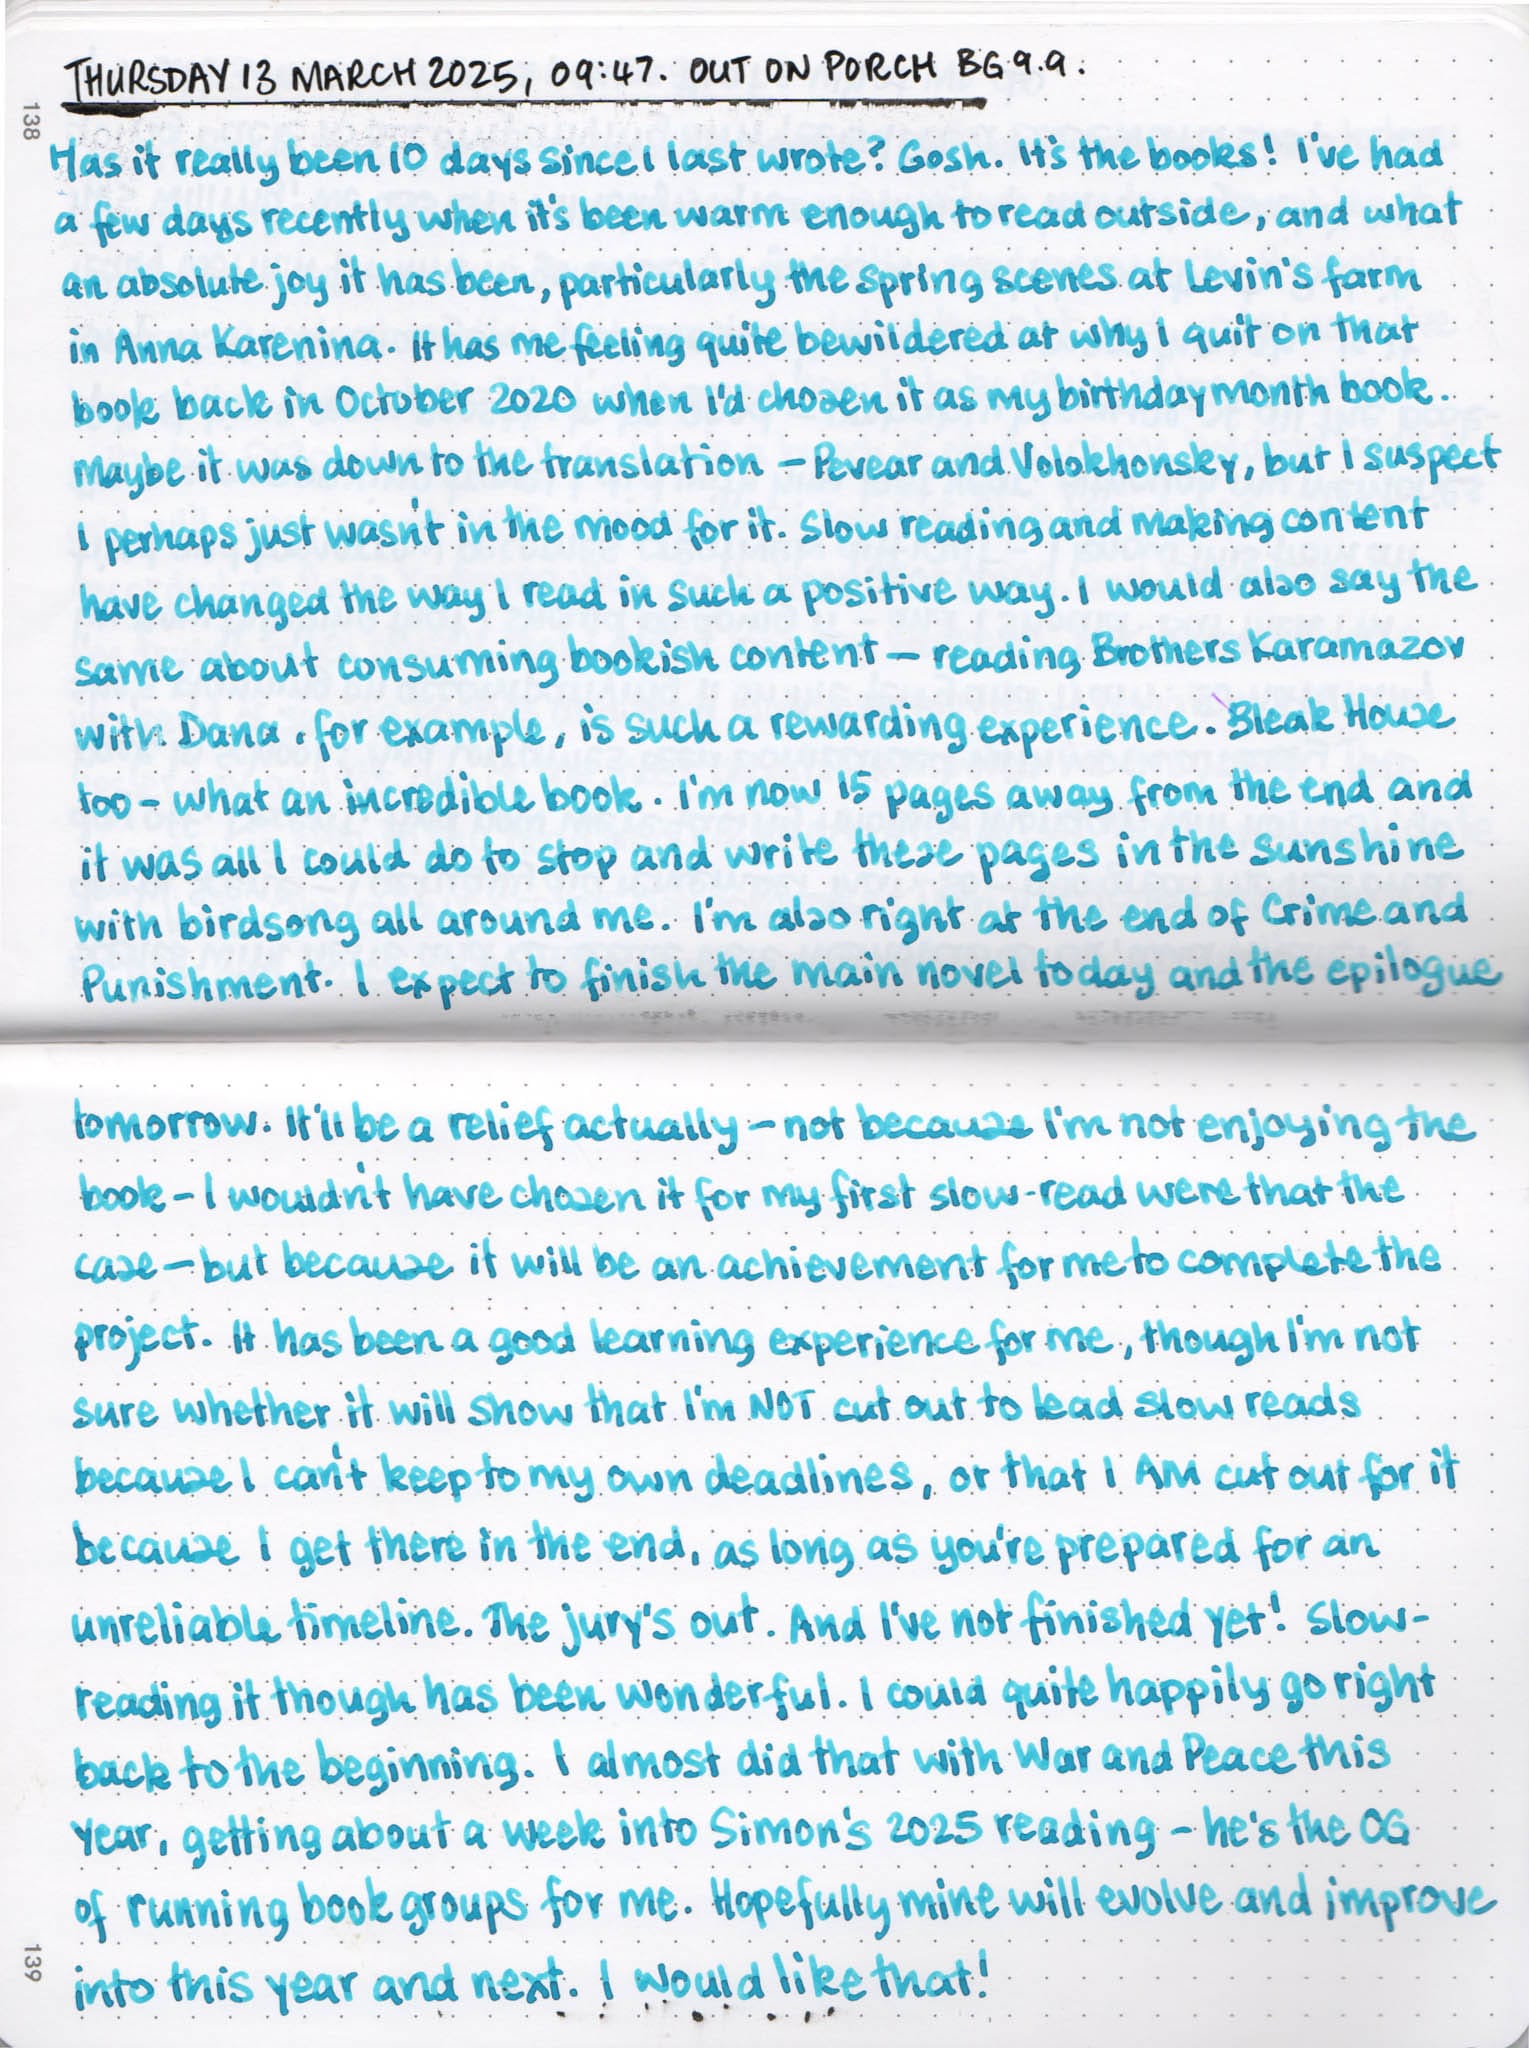 THURSDAY 13 MARCH 2025, 09:47. OUT ON PORCH BG 9.9.
138
Has it really been 10 days since I last wrote? Gosh. It's the books! I've had
a few days recently when it's been warm enough to read outside, and what
an absolute joy it has been, particularly the spring scenes at Levin's farm
in Anna Karenina. It has me feeling quite bewildered at why I quit on that
book back in October 2020 when I'd chosen it as my birthday month book.
Maybe it was down to the translation – Pevear and Volokhonsky, but I suspect
I perhaps just wasn't in the mood for it. Slow reading and making content
have changed the way I read in such a positive way. I would also say the
same about consuming bookish content – reading Brothers Karamazov
with Dana, for example, is such a rewarding experience. Bleak House
too – what an incredible book. I'm now 15 pages away from the end and
it was all I could do to stop and write these pages in the sunshine
with birdsong all around me. I'm also right at the end of Crime and
Punishment. I expect to finish the main novel today and the epilogue
tomorrow. It'll be a relief actually – not because I'm not enjoying the
book – I wouldn't have chosen it for my first slow-read were that the
case – but because it will be an achievement for me to complete the
project. It has been a good learning experience for me, though I'm not
sure whether it will show that I'm NOT cut out to lead slow reads
because I can't keep to my own deadlines, or that I AM cut out for it
because I get there in the end, as long as you're prepared for an
unreliable timeline. The jury's out. And I've not finished yet! Slow-
reading it though has been wonderful. I could quite happily go right
back to the beginning. I almost did that with War and Peace this
year, getting about a week into Simon's 2025 reading – he's the OG
of running book groups for me. Hopefully mine will evolve and improve
into this year and next. I would like that!
139